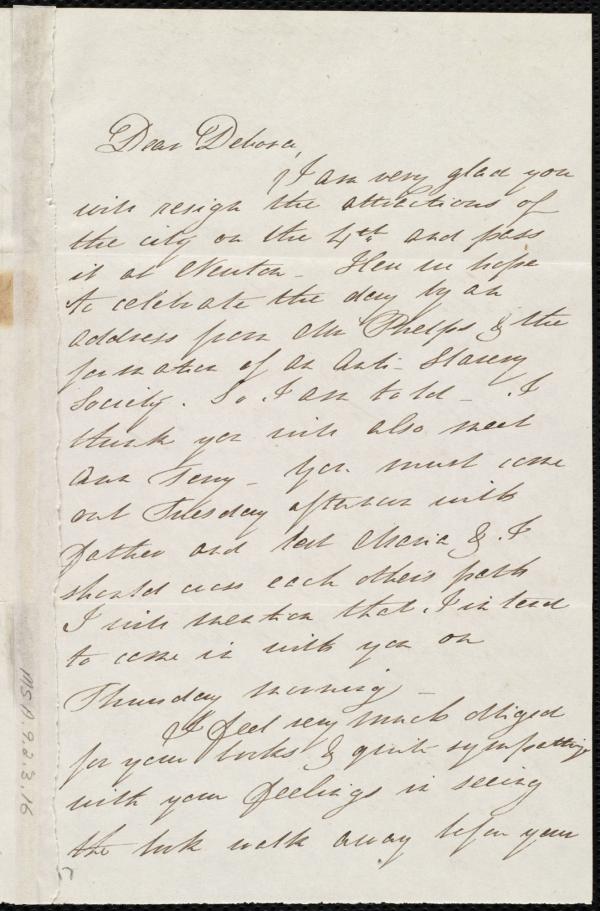 Dear Debora,
I am very glad you
will resign the attractions of
the city on the 4th and pass
it at Newton - Here we hope
to celebrate the day by an
address from Mr Phelps & the
formation of an Anti-Slavery
Society. So I am told - I
think you will also meet
Ann Terry - You must come
out Tuesday afternoon with
Father and lest Maria & I
should cross each other's path
I will mention that I intend
to come in with you on
Thursday morning -
I feel very much obliged
for your books & quite sympathize
with your feelings in seeing
the book walk away before your
MS.A.9.2.3.16